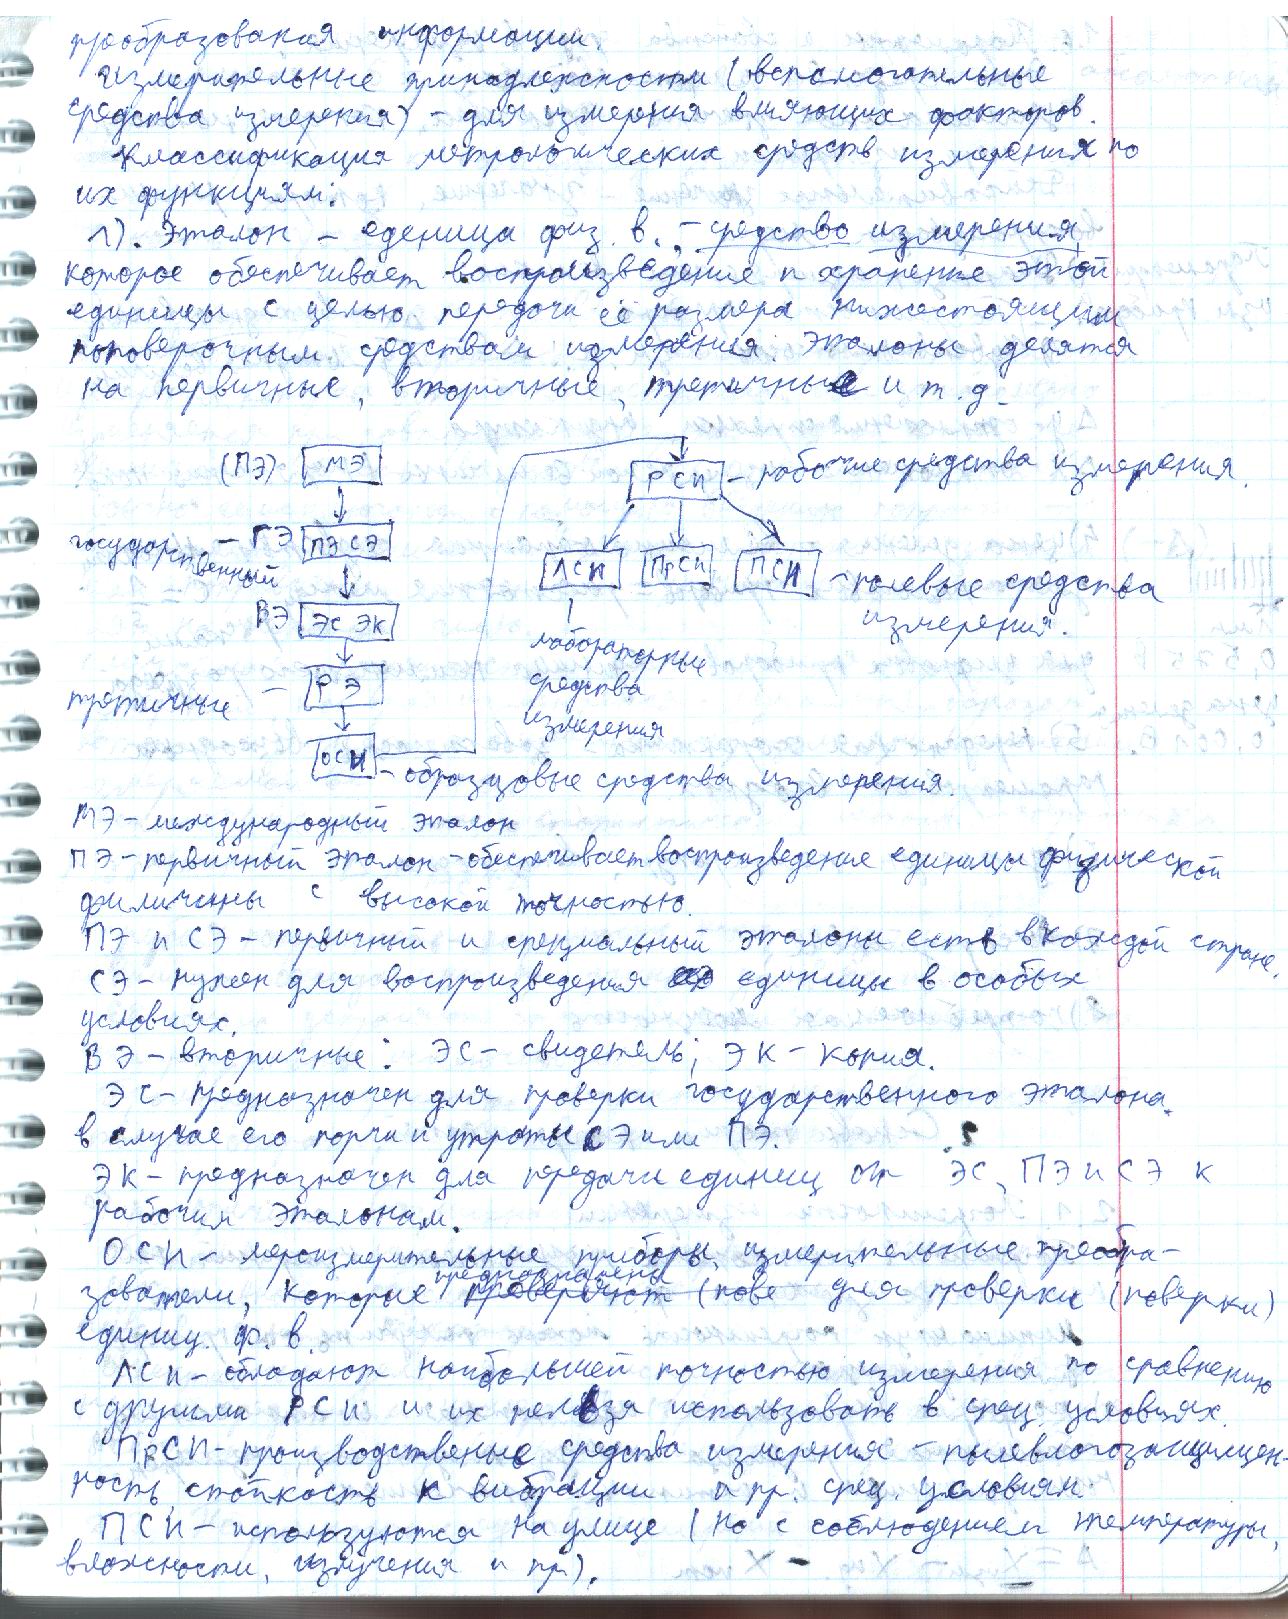 преобразования информации.
Измерительные принадлежности (вспомогательные
средства измерения) – для измерения влияющих факторов.
Классификация метрологических средств измерения по
их функциям:
1). Эталон – еденица физ. в. – средство измерения,
которое обеспечивает воспроизведение и хранение этой
единицы с целью передачи её размера нижестоящим
поповерочным средствам измерения. Эталоны делятся
на первичные, вторичные, третичные и т.д.
(ПЭ) МЭ
РСИ – рабочие средства измерения.
государственный – ГЭ ПЭ СЭ
ЛСИ ПрСИ ПСИ – полевые средства
измерения.
ВЭ ЭС ЭК
лабораторные
средства
измерения
третичные – РЭ
ОСИ – образцовые средства измерения.
МЭ – международный эталон
ПЭ – первичный эталон – обеспечивает воспроизведение единицы физической
филичины с высокой точностью.
ПЭ и СЭ – первичный и специальный эталоны есть в каждой стране.
СЭ – нужен для воспроизведения единицы в особых
условиях.
ВЭ – вторичные: ЭС – свидетель; ЭК – копия.
ЭС – предназначен для проверки государственного эталона.
в случае его порчи и утраты СЭ или ПЭ. ?
ЭК – предназначен для передачи единиц от ЭС, ПЭ и СЭ к
рабочим эталонам.
ОСИ – мероизмерительные приборы, измерительные преобра-
зователи, которые предназначены проверяют (пове для проверки (поверки)
единиц. ф. в.
ЛСИ – обладают наибольшей точностью измерения по сравнению
с другими РСИ и их нельзя использовать в спец. условиях.
ПрСИ – производственые средства измерения – пылевлагозащищен-
ность, стойкость к вибрации и пр. спец. условиям.
ПСИ – используются на улице (но с соблюдением температуры,
влажности, излучения и пр).